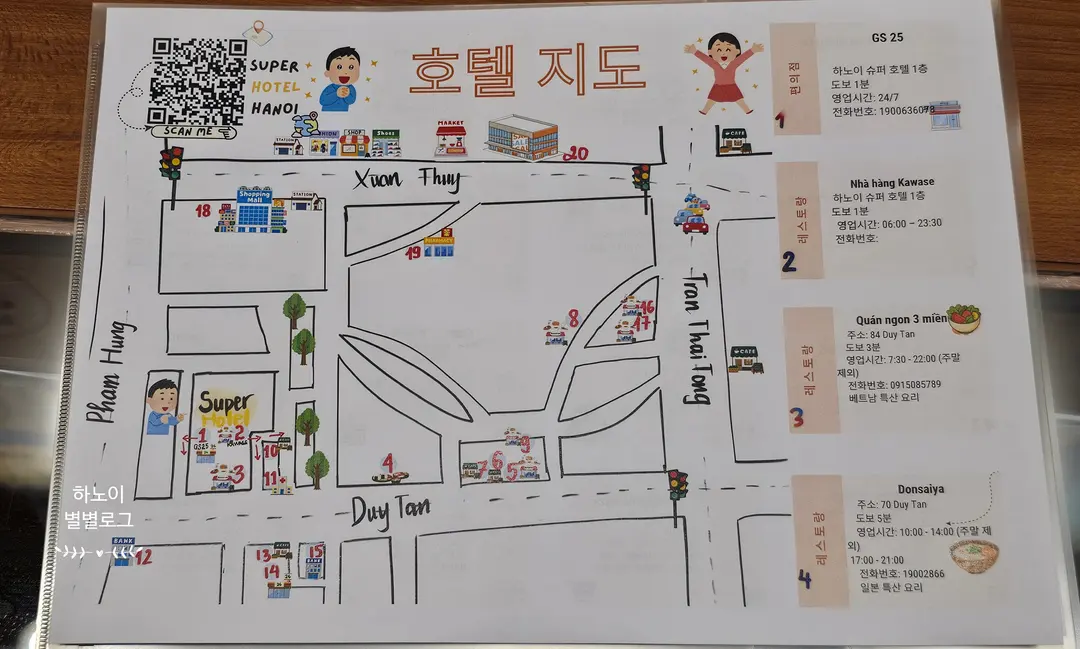 SUPER
HOTEL
HANOI
SCAN ME
호텔 지도
MARKET
SHOP
Shoes
STATION
CAFE
20
Xuan Thuy
18
Shopping
Mall
STATION
19
PHARMACY
8
16
17
Tran Thai Tong
CAFE
Pham Hung
Super
Hotel
1
GS25
2
Kawase
3
10
11
4
9
7
6
5
Duy Tan
BANK
12
13
14
15
BANK
하노이
별별로그
편의점
1
GS 25
하노이 슈퍼 호텔 1층
도보 1분
영업시간: 24/7
전화번호: 1900636078
레스토랑
2
Nhà hàng Kawase
하노이 슈퍼 호텔 1층
도보 1분
영업시간: 06:00 – 23:30
전화번호:
레스토랑
3
Quán ngon 3 miền
주소: 84 Duy Tan
도보 3분
영업시간: 7:30 - 22:00 (주말
제외)
전화번호: 0915085789
베트남 특산 요리
레스토랑
4
Donsaiya
주소: 70 Duy Tan
도보 5분
영업시간: 10:00 - 14:00 (주말 제
외)
17:00 - 21:00
전화번호: 19002866
일본 특산 요리